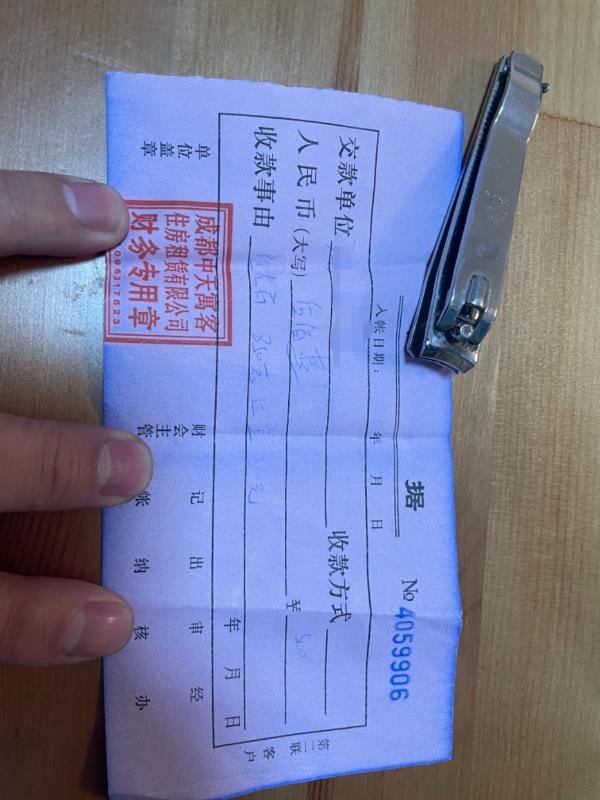 据
No 4059906
入帐日期： 年 月 日
交款单位 收款方式
人民币（大写） 伍佰 ¥ 50
收款事由
年 月 日
第二联 客户
单位盖章 财会主管 记帐 出纳 审核 经办
成都中天寓客
住房租赁有限公司
财务专用章